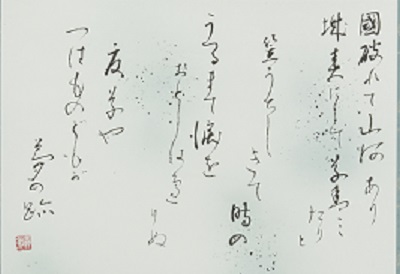 國破れて山河あり
城春にして草青み
たりと
笠うちしきて時の
うつるまで涙を
おとしはべ
りぬ
夏草や
つはものどもが
夢の跡